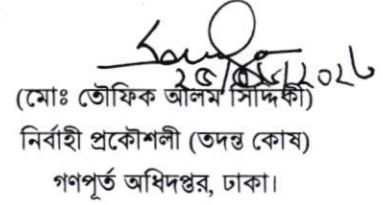 (মোঃ তৌফিক আলম সিদ্দিকী)
নির্বাহী প্রকৌশলী (তদন্ত কোষ)
গণপূর্ত অধিদপ্তর, ঢাকা।